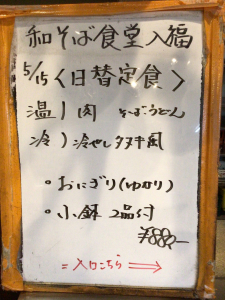 和そば食堂入福
5/15〈日替定食〉
温)肉 そばうどん
冷)冷やしタヌキ風
・おにぎり(ゆかり)
・小鉢 2品付
¥880-
=入口こちら⇒